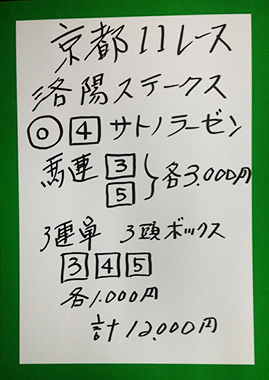 京都11レース
洛陽ステークス
◎ 4 サトノラーゼン
馬連 3
5 } 各3.000円
3連単 3頭ボックス
3 4 5
各1.000円
計12,000円